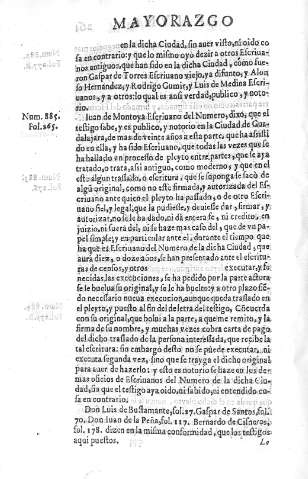 MAYORAZGO
en la dicha Ciudad, sin auer visto, ni oido co
sa en contrario: y que lo mismo oyò dezir a otros Escriua-
nos antiguos, que han sido en la dicha Ciudad, como fue-
ron Gaspar de Torres Escriuano viejo, ya difunto, y Alon
so Hernandez, y Rodrigo Gumir, y Luis de Medina Escri-
uanos, y a otros: lo qual es ansi verdad, publico, y noto-
rio.
Num. 885.
Fol. 265.
Iuan de Montoya Escriuano del Numero, dixo, que el
testigo sabe, y es publico, y notorio en la Ciudad de Gua-
dalajara, de mas de veinte años a esta parte, que ha assisti
do en ella, y ha sido Escriuano, que todas las vezes que se
ha hallado en processo de pleyto entre partes, que se aya
tratado, o trata, assi antiguo, como moderno, y que en el
este algun traslado, o escritura, que se suponga se sacò de
algũ original, como no este firmada, y autorizada del Es-
criuano ante quien el pleyto ha passado, o de otro Escriua
no fiel, y legal, que la pudiesse, y deuiesse dar, firmar, y
autorizar, no se le ha dado, ni dà entera fe, ni credito, en
juizio, ni fuera del, ni se haze mas caso del, que de vn pa-
pel simple, y en particular ante el, durante el tiempo que
ha que es Escriuano del Numero de la dicha Ciudad, que
aurà diez, o doze años, se han presentado ante el escritu-
ras de censos, y otros executar, y fo
necidas las execuciones, se ha pedido por la parte actora
se le buelua su original, y se le ha buelto; y a otro plazo siẽ-
do necessario nueua execucion, aunque queda traslado en
el pleyto, y puesto al fin del de letra del testigo, Cõcuerda
con su original, que boluì a la parte, a que me remito, y la
firma de su nombre, y muchas vezes cobra carta de pago
del dicho traslado de la persona interessada, que recibe la
tal escritura: sin embargo desto no se puede executar, ni
executa segunda vez, sino que se trayga el dicho original
para auer de hazerlo: y esto es notorio se haze en los de-
mas oficios de Escriuanos del Numero de la dicha Ciu-
dad, sin que el testigo aya oido, ni sabido, ni entendido co-
sa en contrario.
Don Luis de Bustamante, fol. 27. Gaspar de Santos, fol.
70. Don Iuan de la Peña, fol. 117. Bernardo de Cisneros,
fol. 178. dizen en la misma conformidad, que los testigos
aqui puestos.
Lo